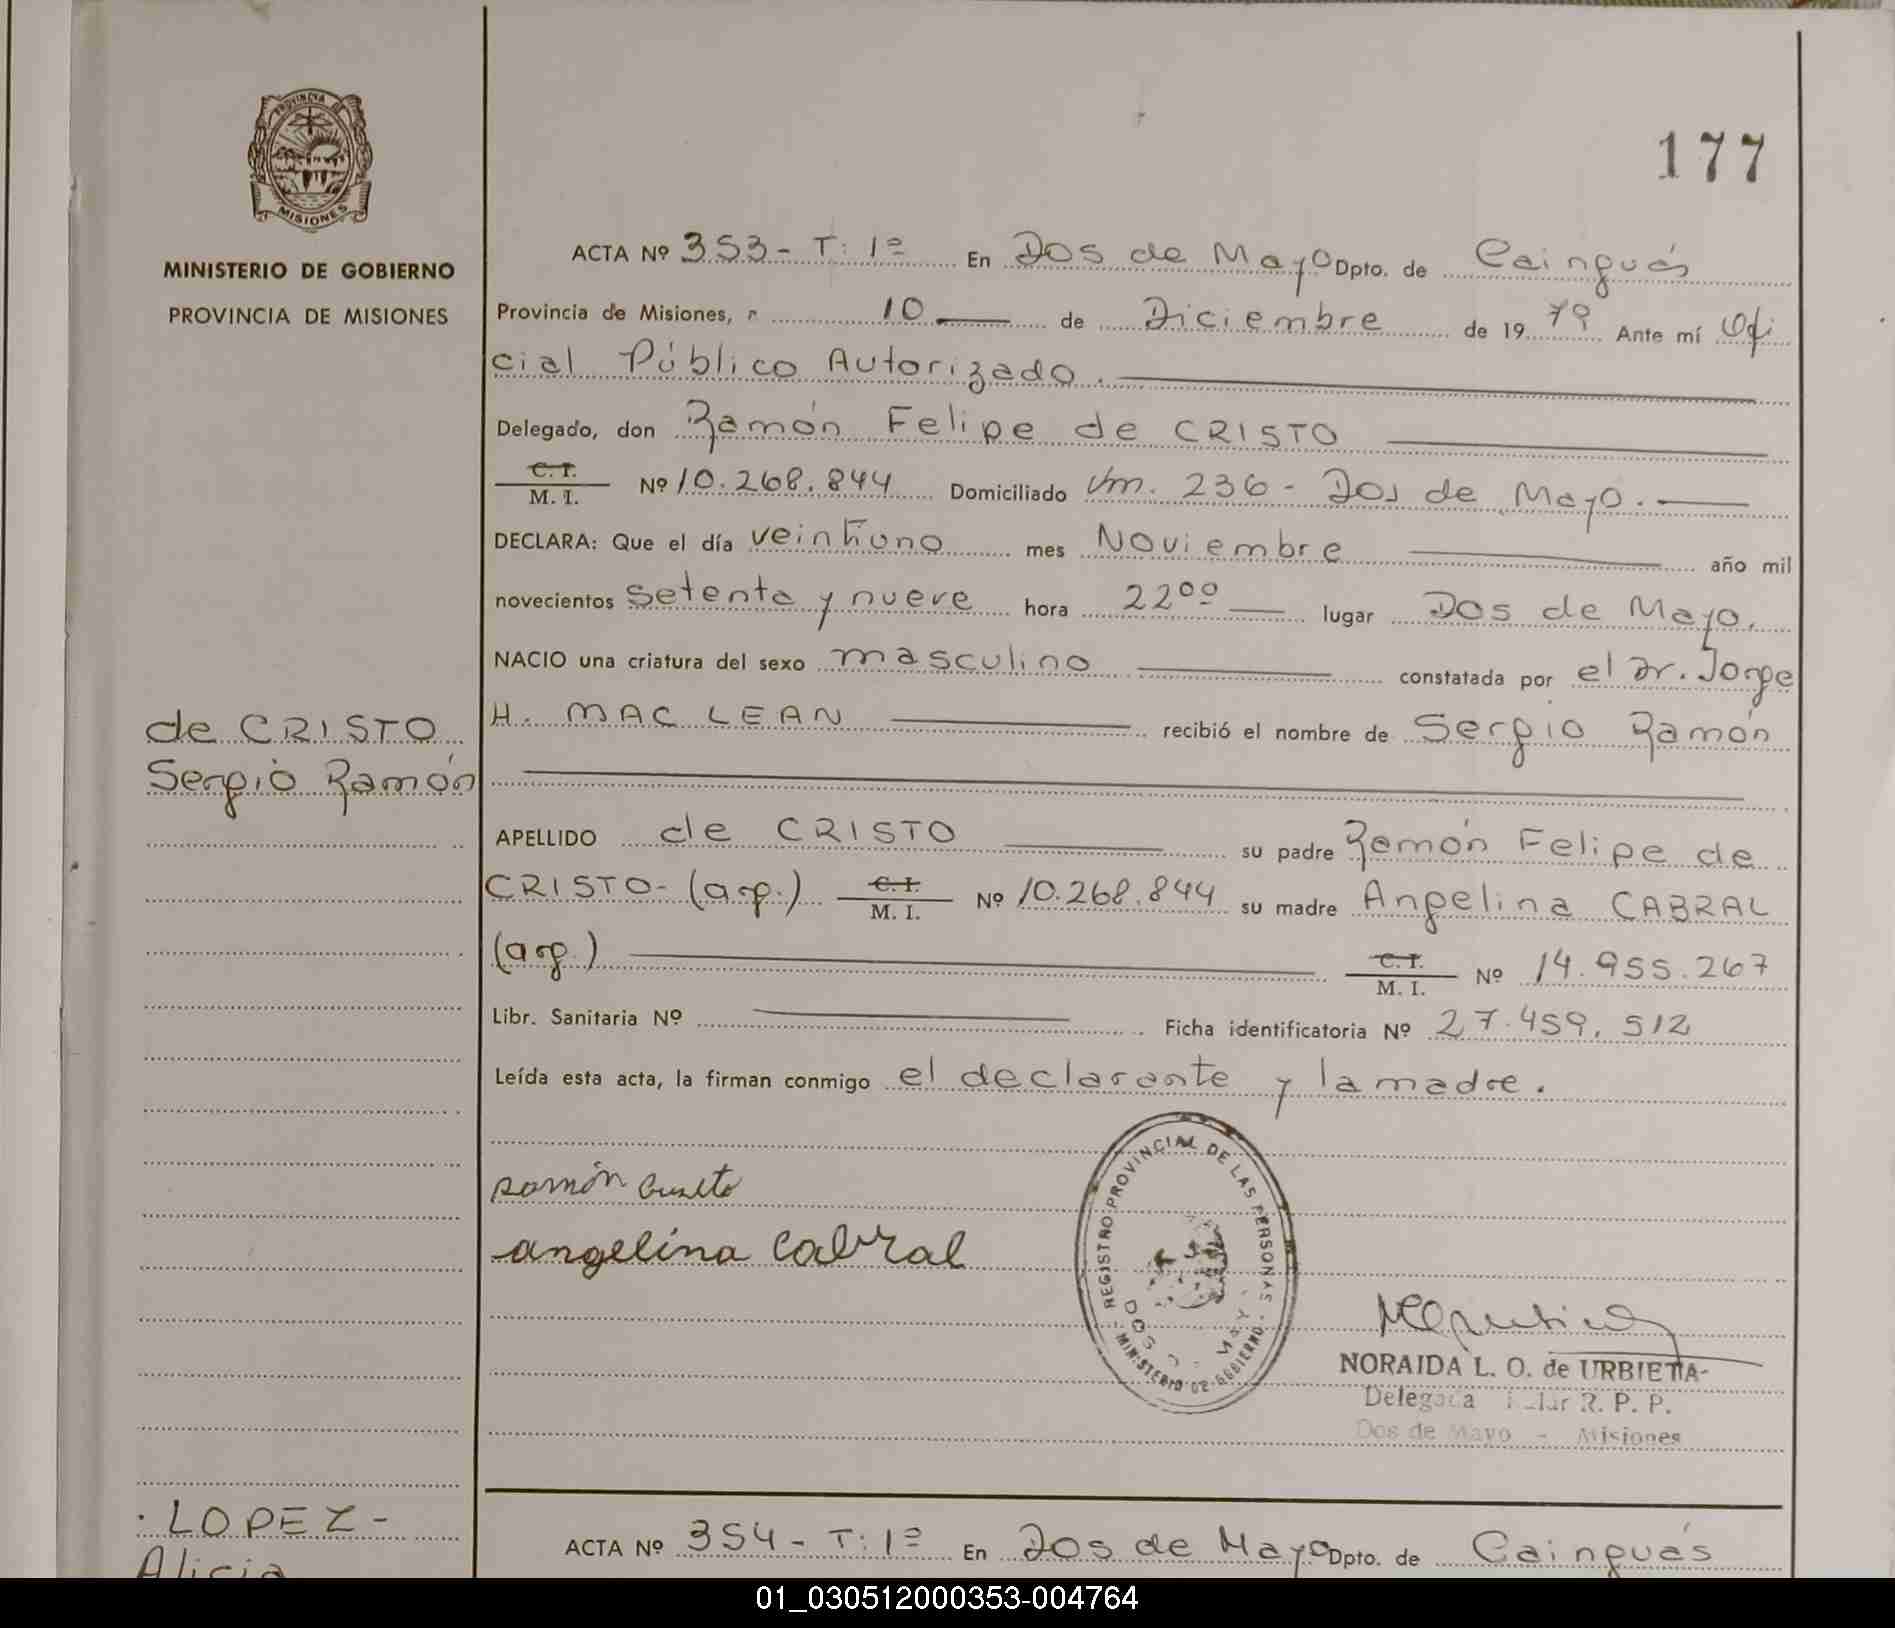 177
PROVINCIA DE
MISIONES
MINISTERIO DE GOBIERNO
PROVINCIA DE MISIONES
ACTA Nº 353 - T: 1º En Dos de Mayo Dpto. de Cainguás
Provincia de Misiones, a 10 de Diciembre de 1979 Ante mí Ofi
cial Público Autorizado.
Delegado, don Ramón Felipe de CRISTO
C. I. M. I. Nº 10.268.844 Domiciliado Km. 236 - Dos de Mayo.
DECLARA: Que el día veintiuno mes Noviembre año mil
novecientos setenta y nueve hora 22ºº lugar Dos de Mayo.
NACIO una criatura del sexo masculino constatada por el Dr. Jorge
H. MAC LEAN recibió el nombre de Sergio Ramón
de CRISTO
Sergio Ramón
APELLIDO de CRISTO su padre Ramón Felipe de
CRISTO - (arg.) C. I. M. I. Nº 10.268.844 su madre Angelina CABRAL
(arg.) C. I. M. I. Nº 14.955.267
Libr. Sanitaria Nº Ficha identificatoria Nº 27.459.512
Leída esta acta, la firman conmigo el declarante y la madre.
REGISTRO PROVINCIAL DE LAS PERSONAS
MINISTERIO DE GOBIERNO
DOS MAY
Ramón
angelina Cabral
NORAIDA L. O. de URBIETA
Delegada R. P. P.
Dos de Mayo - Misiones
LOPEZ -
Alicia
ACTA Nº 354 - T: 1º En Dos de Mayo Dpto. de Cainguás
01_030512000353-004764